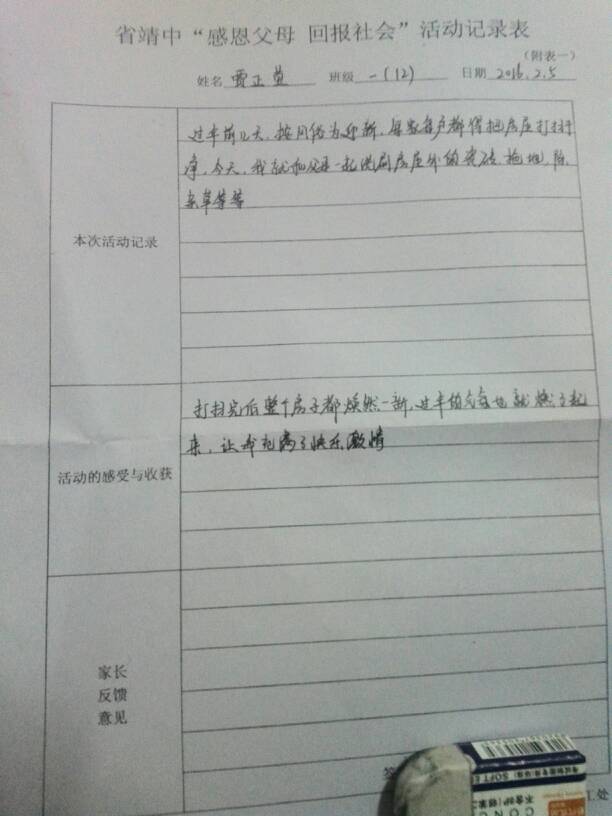 省靖中“感恩父母 回报社会”活动记录表
(附表一)
姓名 贾正 班级 一(12) 日期 2016.2.5
本次活动记录
过年前几天，按风俗为迎新，每家每户都得把房屋打扫干
净，今天，我就和父母一起洗刷房屋外的瓷砖，拖地，除
杂草等等
活动的感受与收获
打扫完后整个房子都焕然一新，过年的气氛也就燃了起
来，让我充满了快乐激情
家长
反馈
意见
SOFT
工处